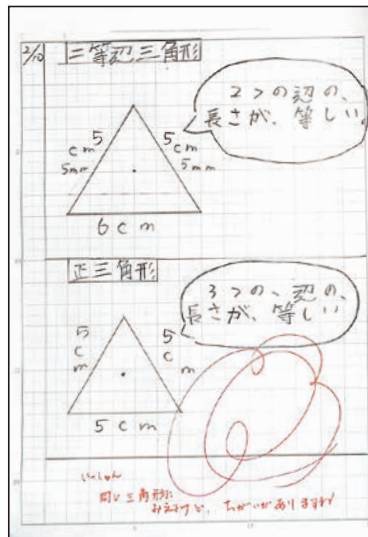 2/10
二等辺三角形
2つの辺の、
長さが、等しい。
5cm5mm
5cm5mm
6cm
正三角形
3つの、辺の、
長さが、等しい
5cm
5cm
5cm
いっしゅん
同じ三角形に
みえるけど、ちがいがありますね